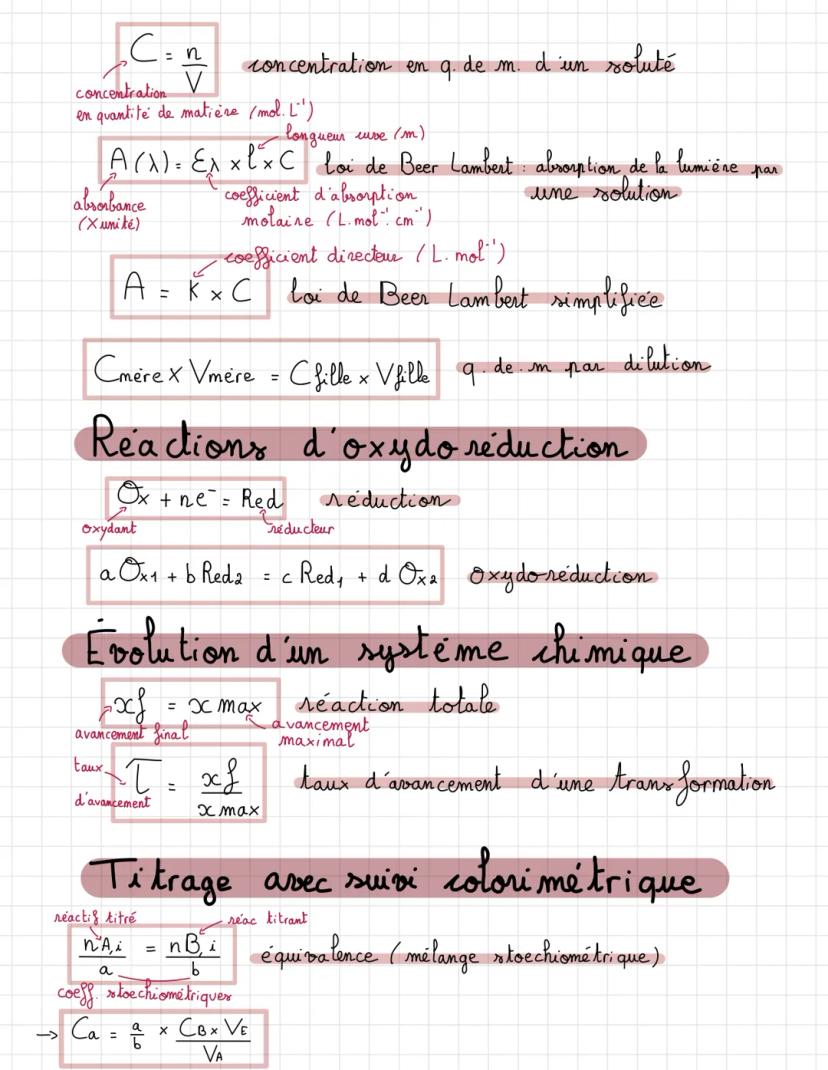 C = n/V concentration en q. de m. d'un soluté
concentration
en quantité de matière (mol.L⁻¹)
longueur cuve (m)
A(λ) = Ελ x l x C loi de Beer Lambert : absorption de la lumière par
une solution
absorbance
(X unité)
coefficient d'absorption
molaire (L.mol⁻¹.cm⁻¹)
coefficient directeur (L.mol⁻¹)
A = K x C loi de Beer Lambert simplifiée
Cmère x Vmère = Cfille x Vfille q. de. m par dilution
Réactions d'oxydoréduction
Ox + ne⁻ = Red réduction
oxydant réducteur
a Ox1 + b Red2 = c Red1 + d Ox2 oxydoréduction
Évolution d'un système chimique
xf = x max réaction totale
avancement final
avancement
maximal
taux
d'avancement
τ = xf/x max taux d'avancement d'une transformation
Titrage avec suivi colorimétrique
réactif titré réac titrant
nA,i/a = nB,i/b équivalence (mélange stoechiométrique)
coeff. stoechiométriques
→ Ca = a/b x CB x VE/VA